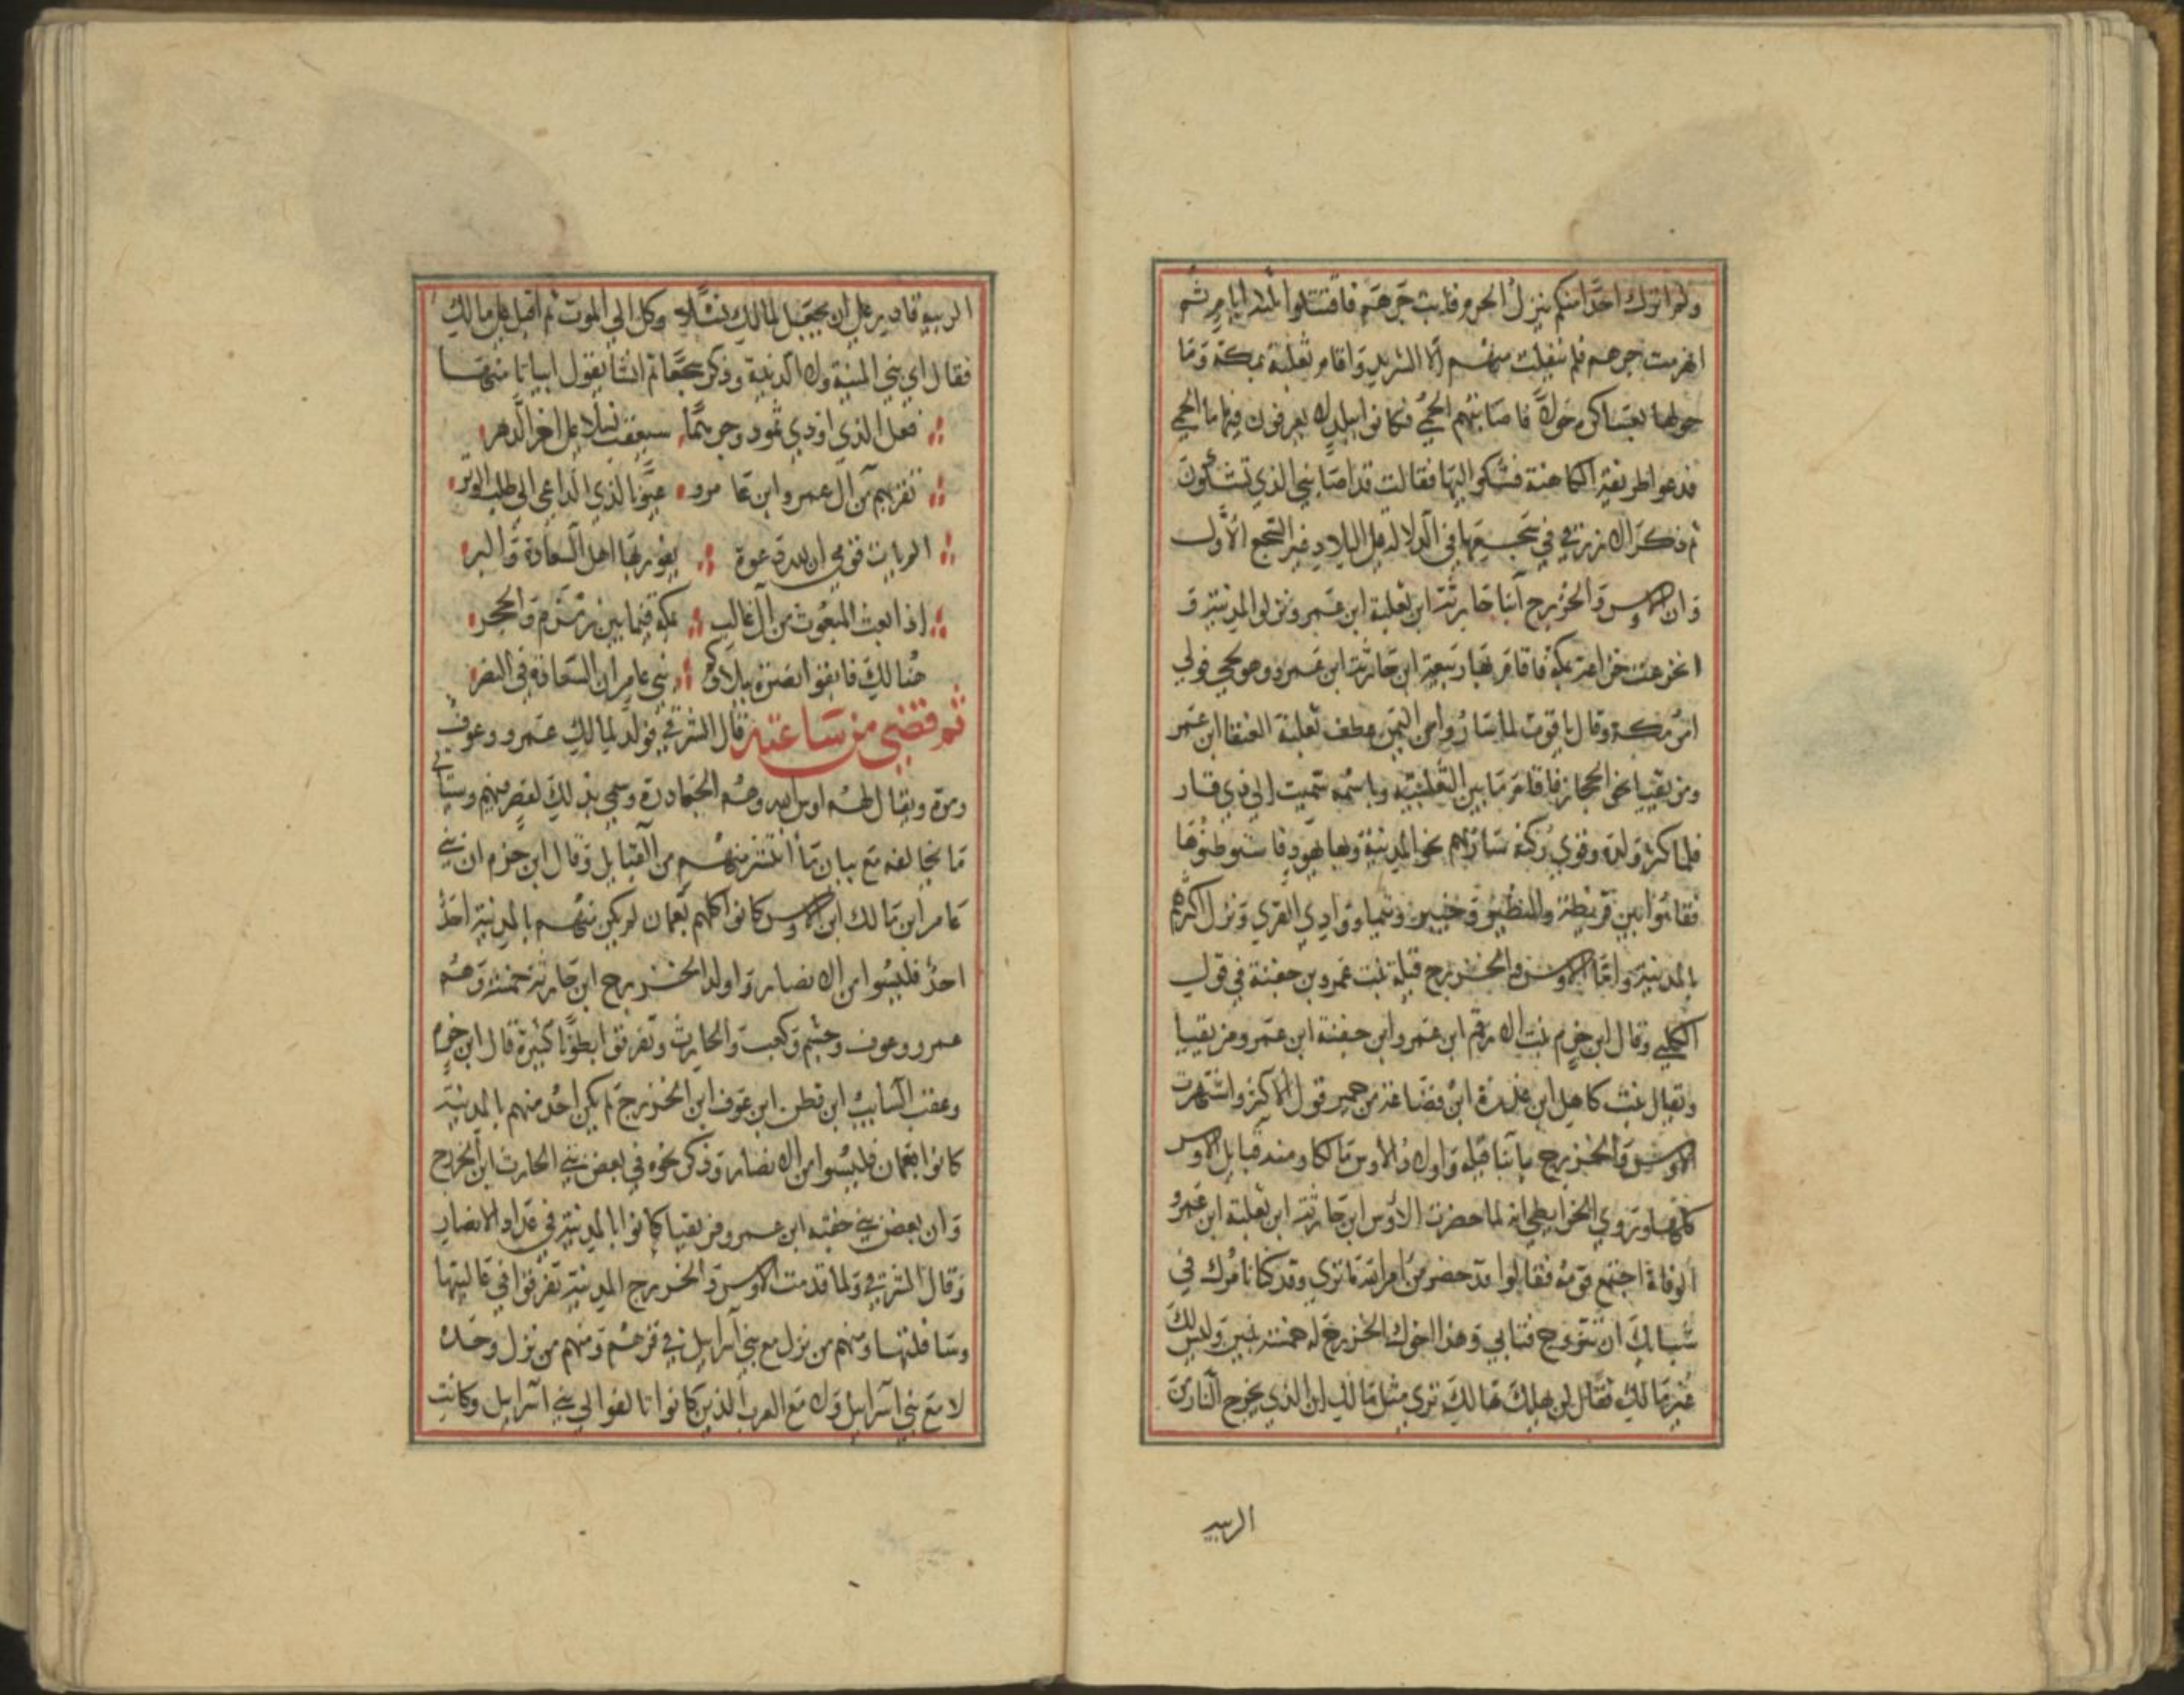 ولم اترك احدا منكم ينزل الحرم فابت جرهم فاقتتلوا ثلثة ايام ثم
انهزمت جرهم فلم ينفلت منهم الا الشريد واقام ثعلبة بمكة وما
حولها بعساكره حولا فاصابتهم الحمى وكانوا ببلد لا يعرفون فيها ما الحمى
فدعوا طريفة الكاهنة فشكوا اليها فقالت قد اصابني الذي تشكون
ثم ذكر الازرقي في سجعها في الدلالة على البلاد غير السجع الاول
وان الاوس والخزرج ابنا حارثة ابن ثعلبة ابن عمرو ونزلوا المدينة و
انخزعت خزاعة بمكة فاقام بها ربيعة ابن حارثة ابن عمرو وهو لحي فولي
امر مكة وقال ياقوت لما ساروا من اليمن عطف ثعلبة العنقا ابن عمر
ومزيقيا نحو الحجاز فاقام ما بين الثعلبية وباسمه سميت الى ذي قار
فلما كثر ولده وقوي ركنه سار بهم نحو المدينة وبها يهود فاستوطنوها
فقاموا بين قريظة والنظير وخيبر وتيما ووادي القرى ونزل اكثرهم
بالمدينة واما الاوس والخزرج قيلة بنت عمرو بن جفنة في قول
الكلبي وقال ابن حزم بنت الارقم ابن عمرو ابن جفنة ابن عمرو مزيقيا
ويقال بنت كاهل ابن عذرة ابن قضاعة من حمير قول الاكثر واشتهرت
الاوس والخزرج بابنا قيله واولاد الاوس مالكا ومنه قبايل الاوس
كلها وتروي الخرايطي انه لما حضرت الاوس ابن حارثة ابن ثعلبة ابن عمرو
الوفاة اجتمع قومه فقالوا قد حضر من امر الله ما ترى وقد كنا نامرك في
شبابك ان تتزوج فتابى وهذا اخوك الخزرج له خمسة بنين وليس لك
غير مالك فقال لن يهلك هالك ترى مثل مالك ان الذي يخرج النار من
الربيه
الربيه قادر على ان يجعل لمالك نسلا وكل الى الموت ثم اقبل على مالك
فقال اي بني المنية ولا الدنية وذكر سجعا ثم انشا يقول ابياتا منها
فعل الذي اودى ثمود وجرهما سيعقب نسلا على اخر الدهر
تقربهم من آل عمرو ابن عامر عيونا لذي الداعي الى طلب الوتر
الم يات قومي ان لله دعوة يفوز بها اهل السعادة والبر
اذا بعث المبعوث من آل غالب بمكة فيما بين زمزم والحجر
هنالك فابغوا نصره ببلادكم بني عامر ان السعادة في النصر
ثم قضى من ساعته قال الشرقي فولد لمالك عمرو وعوف
ومرة ويقال لهم اوس الله وهم الجعادرة وسمي بذلك لقصر فيهم وسياتي
ما يخالفه مع بيان ما انتشر منهم من القبايل وقال ابن حزم ان بني
عامر ابن مالك ابن الاوس كانوا كلهم بعمان لم يكن منهم بالمدينة احد
احد فليسوا من الانصار واولد الخزرج ابن حارثة خمسة وهم
عمرو وعوف وجشم وكعب والحارث وتفرقوا بطونا كثيرة قال ابن حزم
وعقب السايب ابن قطن ابن عوف ابن الخزرج لم يكن احد منهم بالمدينة
كانوا بعمان فليسوا من الانصار وذكر نحوه في بعض بني الحارث ابن الخزرج
وان بعض بني جفنه ابن عمرو مزيقيا كانوا بالمدينة في عداد الانصار
وقال الشرقي ولما قدمت الاوس والخزرج المدينة تفرقوا في عاليتها
وسافلتها ومنهم من نزل مع بني اسراييل في قراهم ومنهم من نزل وحده
لا مع بني اسراييل ولا مع العرب الذين كانوا تالفوا الى بني اسراييل وكانت